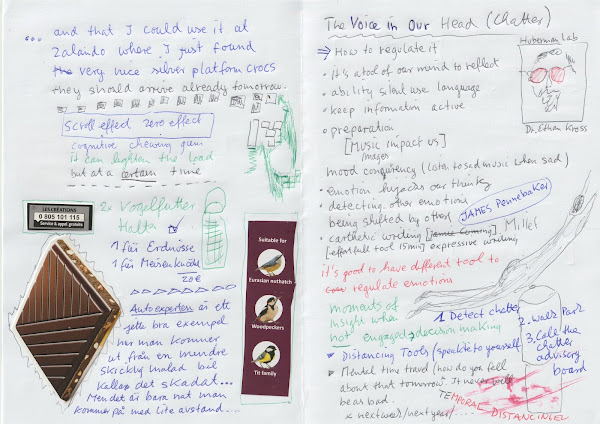 ... and that I could use it at
Zalando where I just found
very nice silver platform crocs
they should arrive already tomorrow.
Scroll effect zero effect
cognitive chewing gum
it can lighten the load
but at a certain time
LES CRÉATIONS
0 805 101 115
Service & appel gratuits
2x Vogelfutter
Halter
1 für Erdnüsse
1 für Meisenknödel
20€
Suitable for
Eurasian nuthatch
Woodpeckers
Tit family
Autoexperten är ett
jätte bra exempel
hur man kommer
ut från en mindre
skicklig målad bil
kallas det skadat...
Men det är bara nat man
kommer på med lite avstand....
The Voice in Our Head (Chatter)
Huberman Lab
Dr. Ethan Kross
⇒ How to regulate it
• it's a tool of our mind to reflect
• ability silent use language
• keep information active
• preparation
[Music impact us]
images
mood congruency (listen to sad music when sad)
• emotion hijacks our thinking
• detecting other emotions
being shifted by other
JAMES Pennebaker
• carthetic writing
[effortfull tool 15min] expressive writing
it's good to have different tool to
regulate emotions
moments of
insight when
not engaged, decision making
1 Detect chatter
2. walk Park
3. Call the
chatter
advisory
board
Distancing Tools (speak to yourself)
Mental time travel (how do you feel
about that tomorrow. It never will
be as bad.
x next week/next year/....
TEMPORAL DISTANCING